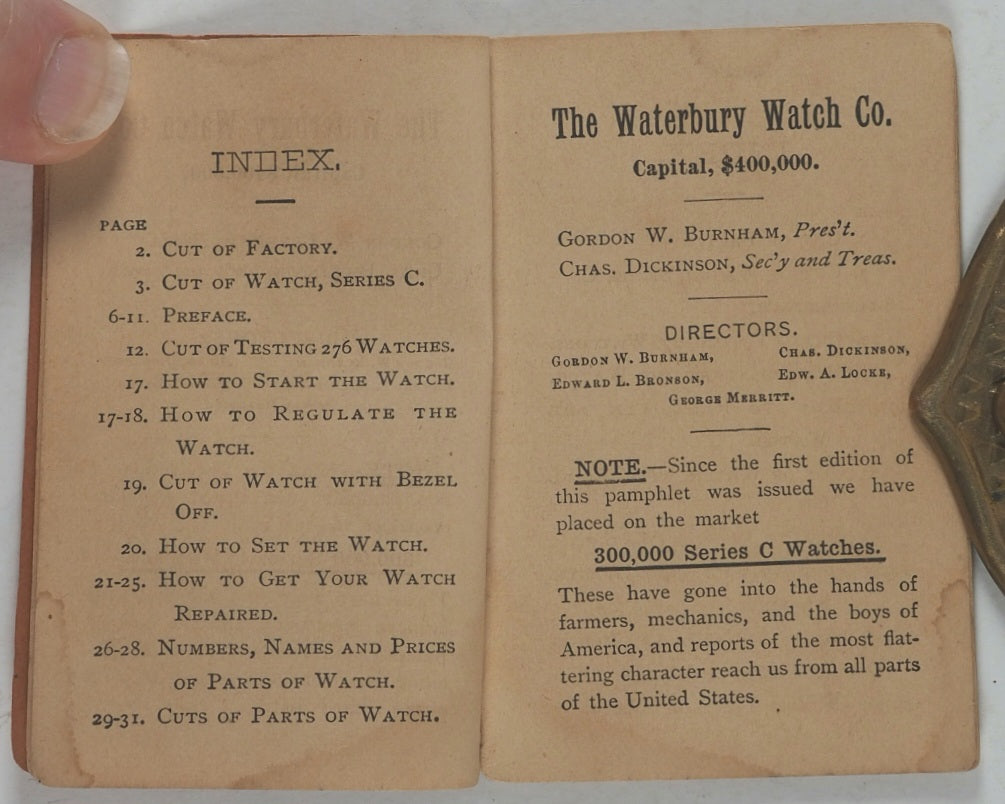 INDEX.
PAGE
2. CUT OF FACTORY.
3. CUT OF WATCH, SERIES C.
6-11. PREFACE.
12. CUT OF TESTING 276 WATCHES.
17. HOW TO START THE WATCH.
17-18. HOW TO REGULATE THE
WATCH.
19. CUT OF WATCH WITH BEZEL
OFF.
20. HOW TO SET THE WATCH.
21-25. HOW TO GET YOUR WATCH
REPAIRED.
26-28. NUMBERS, NAMES AND PRICES
OF PARTS OF WATCH.
29-31. CUTS OF PARTS OF WATCH.
The Waterbury Watch Co.
Capital, $400,000.
GORDON W. BURNHAM, Pres't.
CHAS. DICKINSON, Sec'y and Treas.
DIRECTORS.
GORDON W. BURNHAM, CHAS. DICKINSON,
EDWARD L. BRONSON, EDW. A. LOCKE,
GEORGE MERRITT.
NOTE.—Since the first edition of
this pamphlet was issued we have
placed on the market
300,000 Series C Watches.
These have gone into the hands of
farmers, mechanics, and the boys of
America, and reports of the most flat-
tering character reach us from all parts
of the United States.